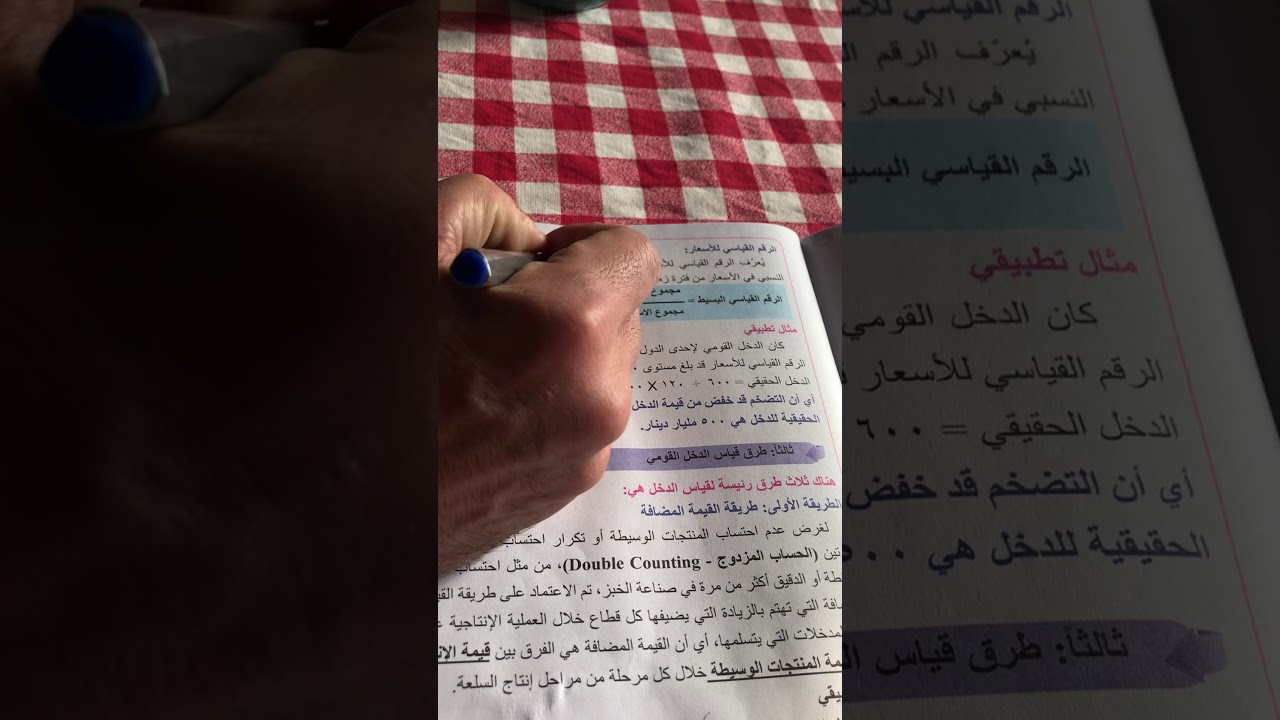 الرقم القياسي للأسعار:
يُعرّف الرقم القياسي
النسبي في الأسعار من فترة
الرقم القياسي البسيط = مجموع
مجموع
مثال تطبيقي
كان الدخل القومي لإحدى الدول
الرقم القياسي للأسعار قد بلغ مستوى
الدخل الحقيقي = ٦٠٠ ÷ ١٢٠ X
أي أن التضخم قد خفض من قيمة الدخل
الحقيقية للدخل هي ٥٠٠ مليار دينار.
ثالثاً: طرق قياس الدخل القومي
هناك ثلاث طرق رئيسة لقياس الدخل هي:
الطريقة الأولى: طريقة القيمة المضافة
لغرض عدم احتساب المنتجات الوسيطة أو تكرار احتساب
(الحساب المزدوج - Double Counting)، من مثل احتساب
أو الدقيق أكثر من مرة في صناعة الخبز، تم الاعتماد على طريقة
التي تهتم بالزيادة التي يضيفها كل قطاع خلال العملية الإنتاجية
المدخلات التي يتسلمها، أي أن القيمة المضافة هي الفرق بين قيمة
المنتجات الوسيطة خلال كل مرحلة من مراحل إنتاج السلعة.